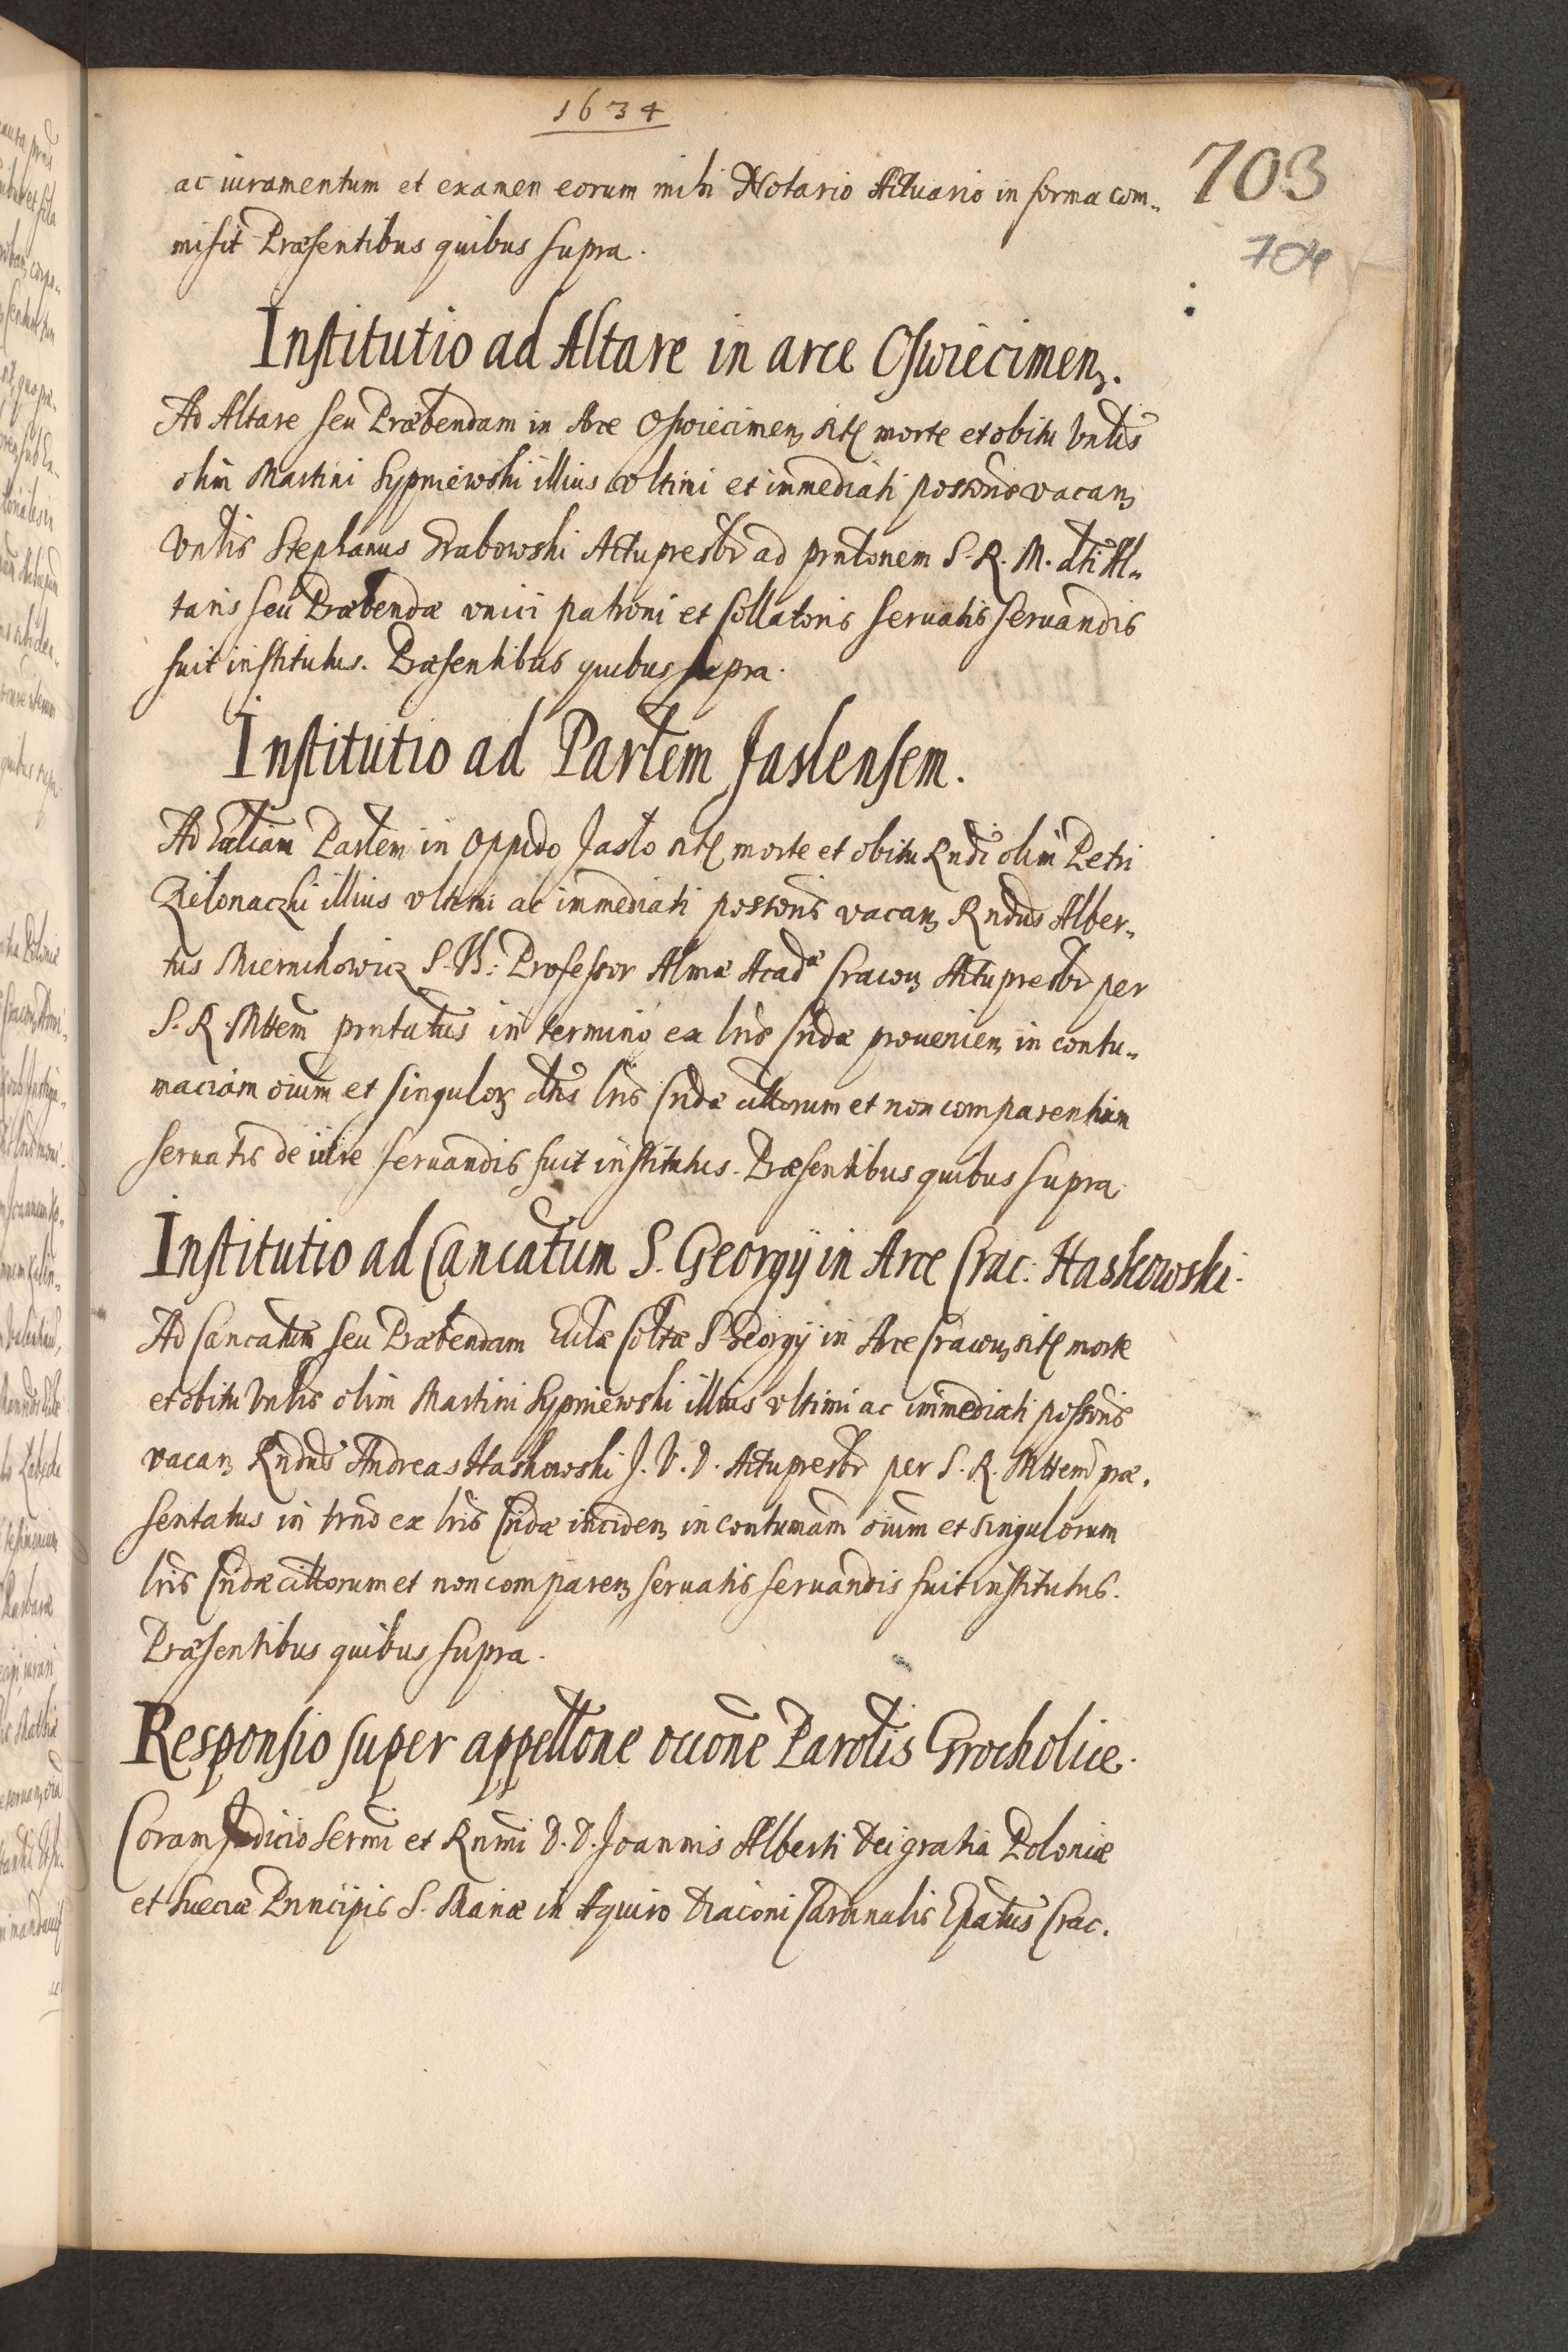 1634
703
704
ac iuramentum et examen eorum mihi Notario Actuario in forma com„
misit Præsentibus quibus supra.
Institutio ad Altare in arce Oswiecimen.
Ad Altare seu Præbendam in Arce Oswiecimen sit morte et obitu Vnlis
olim Martini Sypniewski illius vltimi et immediati possoris vacan
Vnlis Stephanus Grabowski Actu presbr ad prntonem S. R. M. dti Al„
taris seu Præbendæ vnici patroni et Collatoris seruatis seruandis
fuit institutus. Præsentibus quibus supra.
Institutio ad Partem Jaslensem.
Ad Eccliam Partem in Oppido Jasło sit morte et obitu Rndi olim Petri
Zielonaczki illius vltimi ac immediati possoris vacan Rndus Alber„
tus Miernikowicz S. Professor Almæ Acadæ Cracou Actu presbr per
S. R. Mttem prntatus in termino ex lris Cridæ prouenien in contu„
maciam oium et singulor dtis lris Cridæ cittorum et non comparentium
seruatis de iure seruandis fuit institutus. Præsentibus quibus supra.
Institutio ad Cancatum S. Georgij in Arce Crac: Haskowski.
Ad Cancatum seu Præbendam Eccliæ Colltæ S. Georgij in Arce Cracou sit morte
et obitu Vnlis olim Martini Sypniewski illius vltimi ac immediati possoris
vacan Rndus Andreas Haskowski J. V. D. Actu presbr per S. R. Mttem præ„
sentatus in trno ex lris Cridæ inciden in contumam oium et singulorum
lris Cridæ cittorum et non comparen seruatis seruandis fuit institutus.
Præsentibus quibus supra.
Responsio super appelltone occone Parolis Grocholice.
Coram Judicio Sermi et Rnmi D. D. Joannis Alberti Dei gratia Poloniæ
et Sueciæ Principis S. Mariæ in Aquiro Diaconi Cardinalis Epatus Crac.